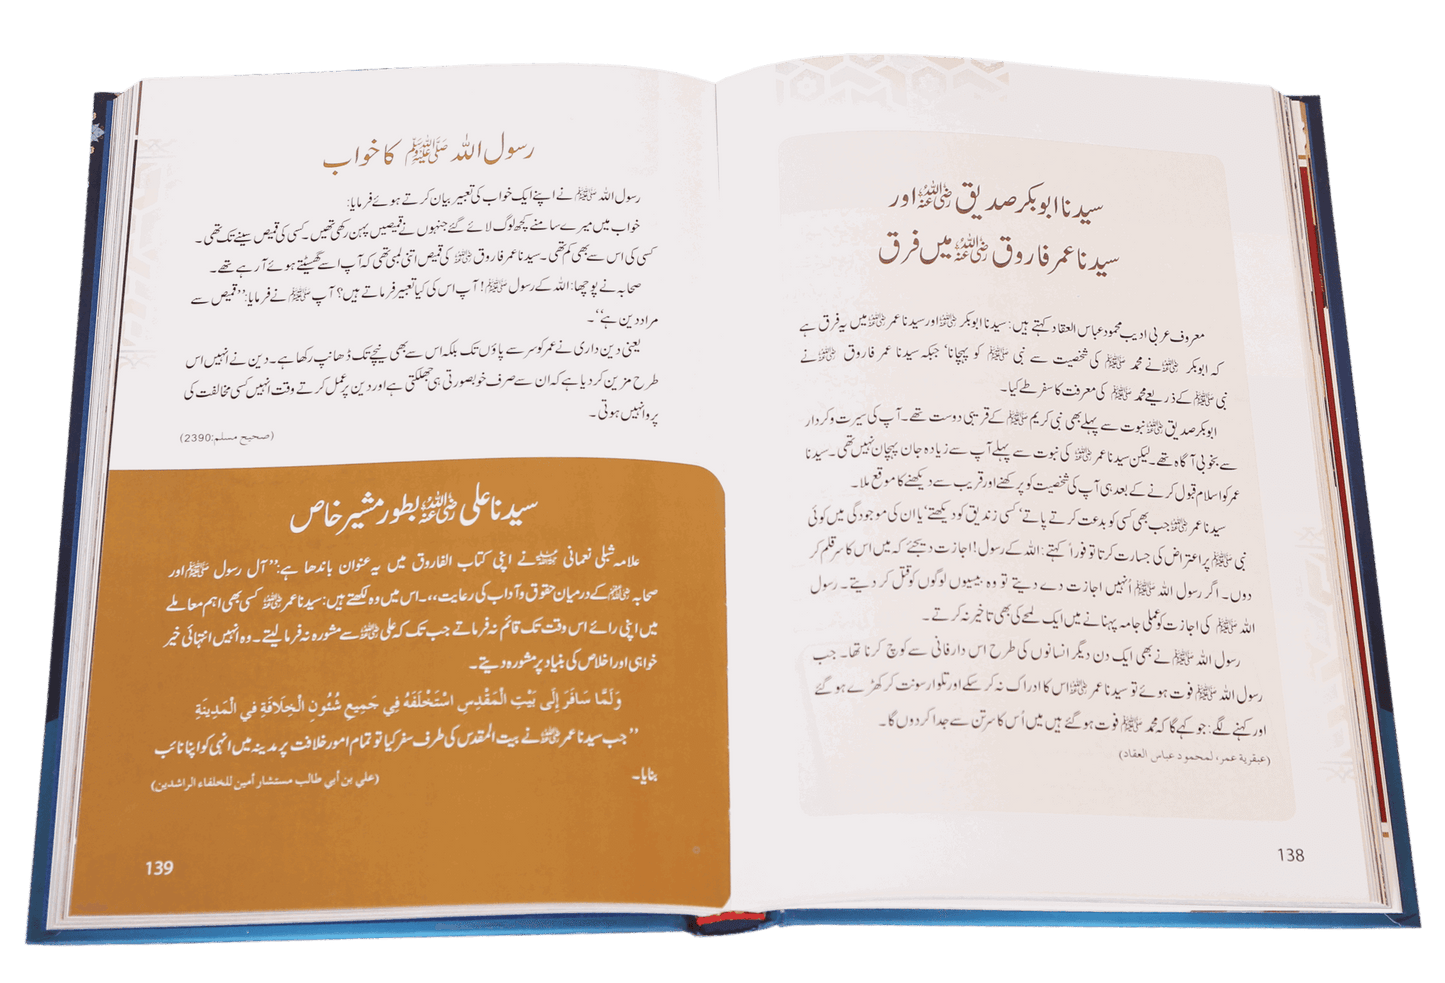 سیدنا ابوبکر صدیق رضی اللہ عنہ اور
سیدنا عمر فاروق رضی اللہ عنہ میں فرق
معروف عربی ادیب محمود عباس العقاد کہتے ہیں: سیدنا ابوبکر رضی اللہ عنہ اور سیدنا عمر رضی اللہ عنہ میں یہ فرق ہے
کہ ابوبکر رضی اللہ عنہ نے محمد ﷺ کی شخصیت سے نبی ﷺ کو پہچانا، جبکہ سیدنا عمر فاروق رضی اللہ عنہ نے
نبی ﷺ کے ذریعے محمد ﷺ کی معرفت کا سفر طے کیا۔
ابوبکر صدیق رضی اللہ عنہ نبوت سے پہلے بھی نبی کریم ﷺ کے قریبی دوست تھے۔ آپ کی سیرت و کردار
سے بخوبی آگاہ تھے۔ لیکن سیدنا عمر رضی اللہ عنہ کی نبوت سے پہلے آپ سے زیادہ جان پہچان نہیں تھی۔ سیدنا
عمر کو اسلام قبول کرنے کے بعد ہی آپ کی شخصیت کو پرکھنے اور قریب سے دیکھنے کا موقع ملا۔
سیدنا عمر رضی اللہ عنہ جب بھی کسی کو بدعت کرتے پاتے، کسی زندیق کو دیکھتے، یا ان کی موجودگی میں کوئی
نبی ﷺ پر اعتراض کی جسارت کرتا تو فوراً کہتے: اللہ کے رسول! اجازت دیجئے کہ میں اس کا سر قلم کر
دوں۔ اگر رسول اللہ ﷺ اُنہیں اجازت دے دیتے تو وہ بیسیوں لوگوں کو قتل کر دیتے۔ رسول
اللہ ﷺ کی اجازت کو عملی جامہ پہنانے میں ایک لمحے کی بھی تاخیر نہ کرتے۔
رسول اللہ ﷺ نے بھی ایک دن دیگر انسانوں کی طرح اس دار فانی سے کوچ کرنا تھا۔ جب
رسول اللہ ﷺ فوت ہوئے تو سیدنا عمر رضی اللہ عنہ اس کا ادراک نہ کر سکے اور تلوار سونت کر کھڑے ہو گئے
اور کہنے لگے: جو کہے گا کہ محمد ﷺ فوت ہو گئے ہیں میں اُس کا سر تن سے جدا کر دوں گا۔
(عبقرية عمر، لمحمود عباس العقاد)
138
رسول اللہ ﷺ کا خواب
رسول اللہ ﷺ نے اپنے ایک خواب کی تعبیر بیان کرتے ہوئے فرمایا:
خواب میں میرے سامنے کچھ لوگ لائے گئے جنہوں نے قمیصیں پہن رکھی تھیں۔ کسی کی قمیص سینے تک تھی۔
کسی کی اس سے بھی کم تھی۔ سیدنا عمر فاروق رضی اللہ عنہ کی قمیص اتنی لمبی تھی کہ آپ اسے گھسیٹتے ہوئے آ رہے تھے۔
صحابہ نے پوچھا: اللہ کے رسول ﷺ! آپ اس کی کیا تعبیر فرماتے ہیں؟ آپ ﷺ نے فرمایا: ’’قمیص سے
مراد دین ہے‘‘۔
یعنی دین داری نے عمر کو سر سے پاؤں تک بلکہ اس سے بھی نیچے تک ڈھانپ رکھا ہے۔ دین نے انہیں اس
طرح مزین کر دیا ہے کہ ان سے صرف خوبصورتی ہی جھلکتی ہے اور دین پر عمل کرتے وقت انہیں کسی مخالفت کی
پروا نہیں ہوتی۔
(صحیح مسلم: 2390)
سیدنا علی رضی اللہ عنہ بطور مشیر خاص
علامہ شبلی نعمانی رحمہ اللہ نے اپنی کتاب الفاروق میں یہ عنوان باندھا ہے: ’’آل رسول ﷺ اور
صحابہ رضی اللہ عنہم کے درمیان حقوق و آداب کی رعایت‘‘۔ اس میں وہ لکھتے ہیں: سیدنا عمر رضی اللہ عنہ کسی بھی اہم معاملے
میں اپنی رائے اس وقت تک قائم نہ فرماتے جب تک کہ علی رضی اللہ عنہ سے مشورہ نہ فرما لیتے۔ وہ انہیں انتہائی خیر
خواہی اور اخلاص کی بنیاد پر مشورہ دیتے۔
وَلَمَّا سَافَرَ إِلَى بَيْتِ الْمَقْدِسِ اسْتَخْلَفَهُ فِي جَمِيعِ شُئُونِ الْخِلَافَةِ فِي الْمَدِينَةِ
’’جب سیدنا عمر رضی اللہ عنہ نے بیت المقدس کی طرف سفر کیا تو تمام امور خلافت پر مدینہ میں انہی کو اپنا نائب
بنایا۔ (علي بن أبي طالب مستشار أمين للخلفاء الراشدين)
139